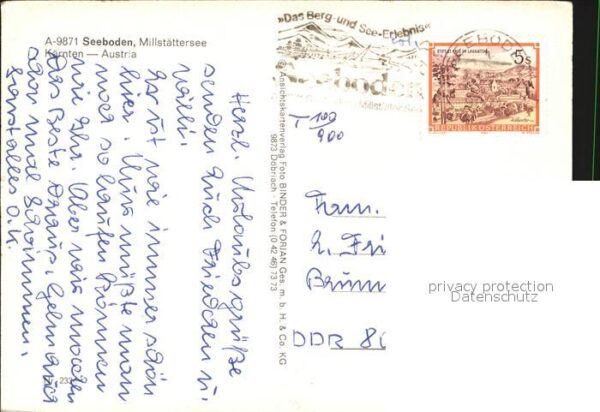 A-9871 Seeboden, Millstättersee
Kärnten — Austria
»Das Berg- und See-Erlebnis«
Seeboden
Millstätter See
SEEBODEN
5s
REPUBLIK ÖSTERREICH
T 100
900
Ansichtskartenverlag Foto BINDER & FORIAN Ges. m. b. H. & Co. KG
9873 Döbriach - Telefon (0 42 46) 73 73
Herzl. Urlaubsgrüße
senden Euch Frieden u.
Willi.
Es ist wie immer schön
hier. Nur müßte man
noch so laufen können
wie Ihr. Aber wir machen
das Beste draus. Gehn auch
oder mal schwimmen.
Sonst alles o.k.
Fam.
Fri
Brunn
DDR 80
privacy protection
Datenschutz
232